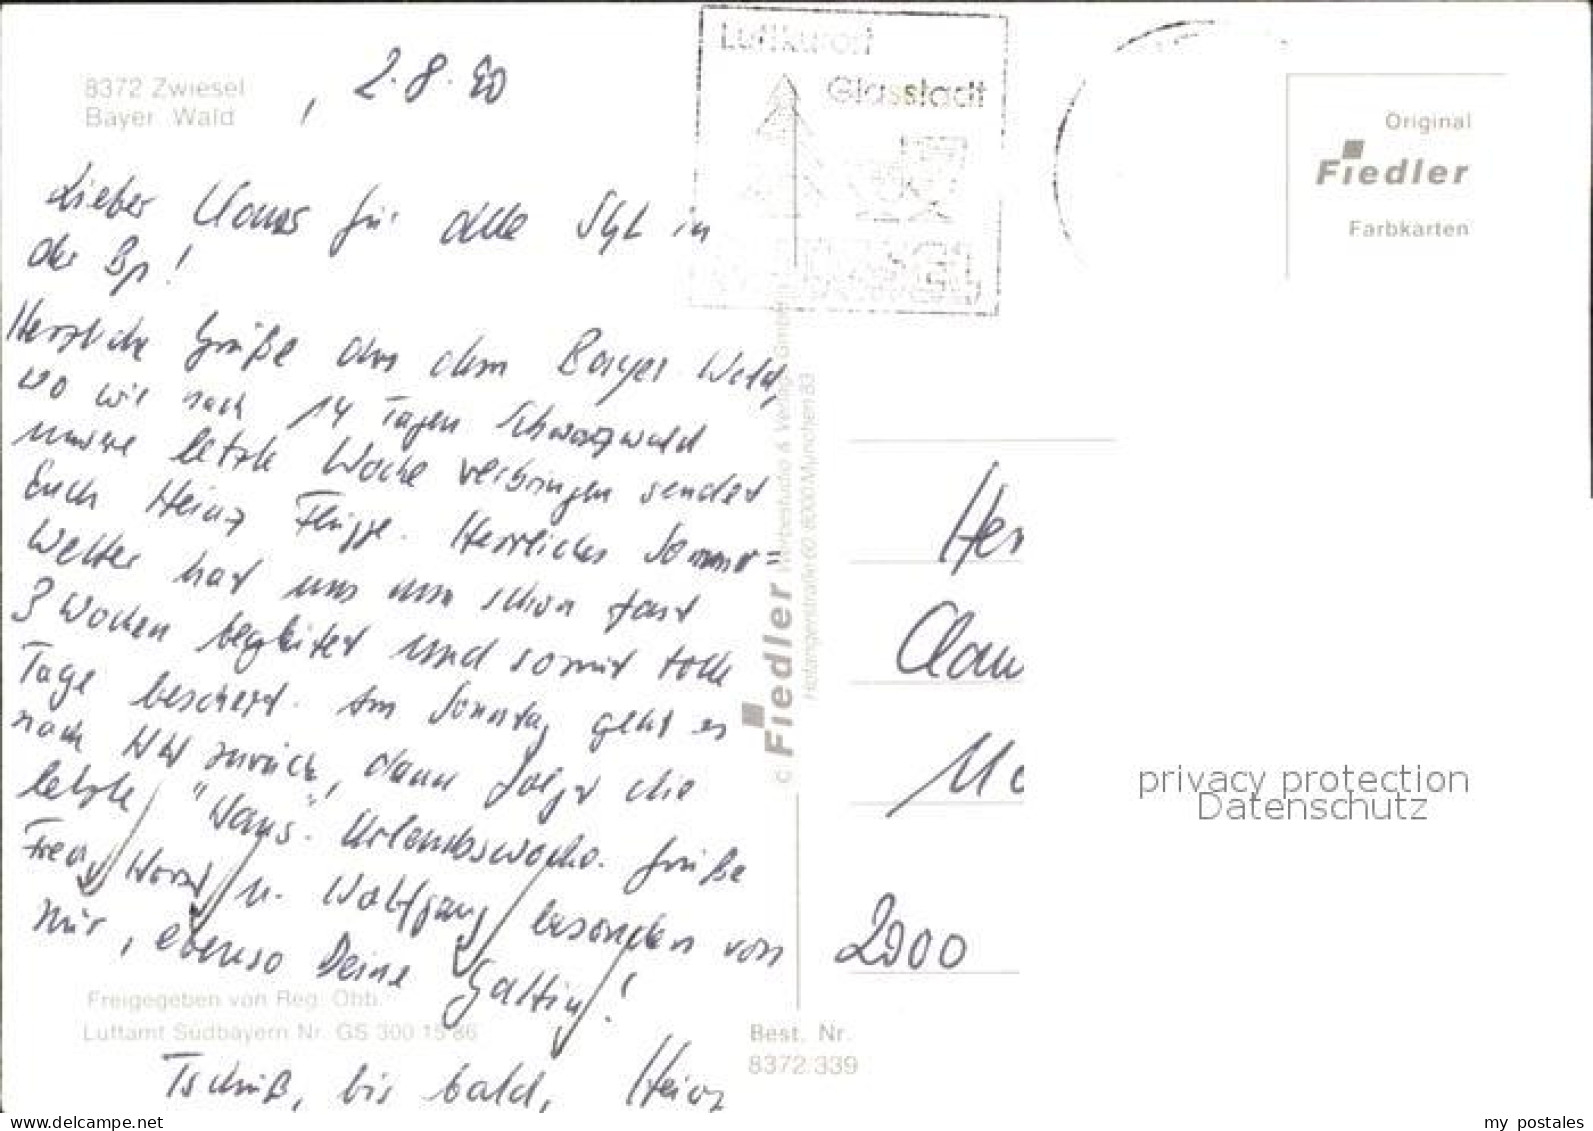 8372 Zwiesel
Bayer. Wald
, 2.8.90
Lieber Klaus für alle in
der Bp!
Herzliche Grüße aus dem Bayer. Wald,
wo wir nach 14 Tagen Schwarzwald
unsere letzte Woche verbringen sendet
Euch Heinz Flügge. Herrliches Sommer=
Wetter hat uns nun schon fast
3 Wochen begleitet und somit tolle
Tage beschert. Am Sonntag geht es
nach zurück, dann folgt die
letzte "Haus". Urlaubswoche. Grüße
u. Wolfgang besonders von
mir, ebenso Deine Gattin!
Tschüß, bis bald, Heinz
Freigegeben von Reg. Obb.
Luftamt Südbayern Nr. GS 300 15 86
Luftkurort
Glasstadt
© Fiedler Werbestudio & Verlag GmbH
8000 München 83
Best. Nr.
8372 339
Original
Fiedler
Farbkarten
Her
Clau
2000
privacy protection
Datenschutz
www.delcampe.net
my_postales